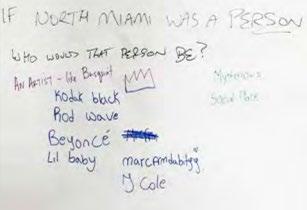 IF NORTH MIAMI WAS A PERSON
WHO WOULD THAT PERSON BE?
AN ARTIST - like Basquiat
Mysterious
Kodak black
Social Place
Rod wave
Beyoncé
Lil baby
J Cole